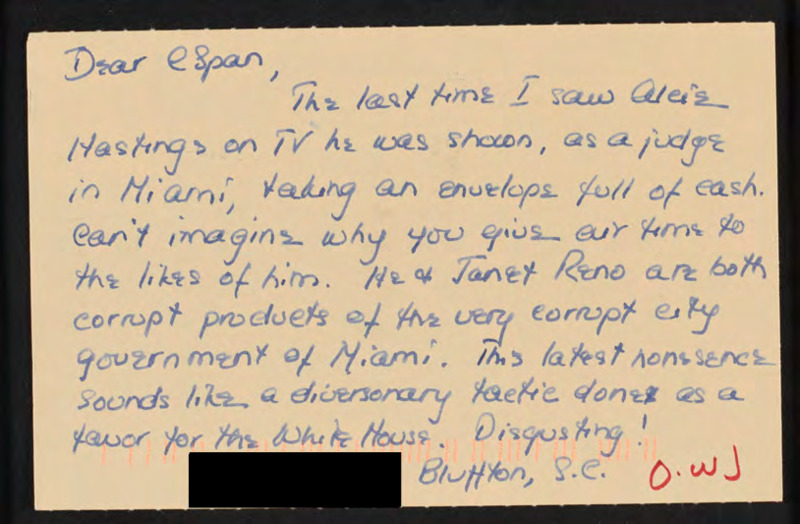 Dear CSpan,
The last time I saw Alcie
Hastings on TV he was shown, as a judge
in Miami, taking an envelope full of cash.
Can't imagine why you give air time to
the likes of him. He & Janet Reno are both
corrupt products of the very corrupt city
government of Miami. This latest nonessence
sounds like a diversonary tactic done as a
favor for the White House. Disgusting!
Bluffton, S.C. O.WJ